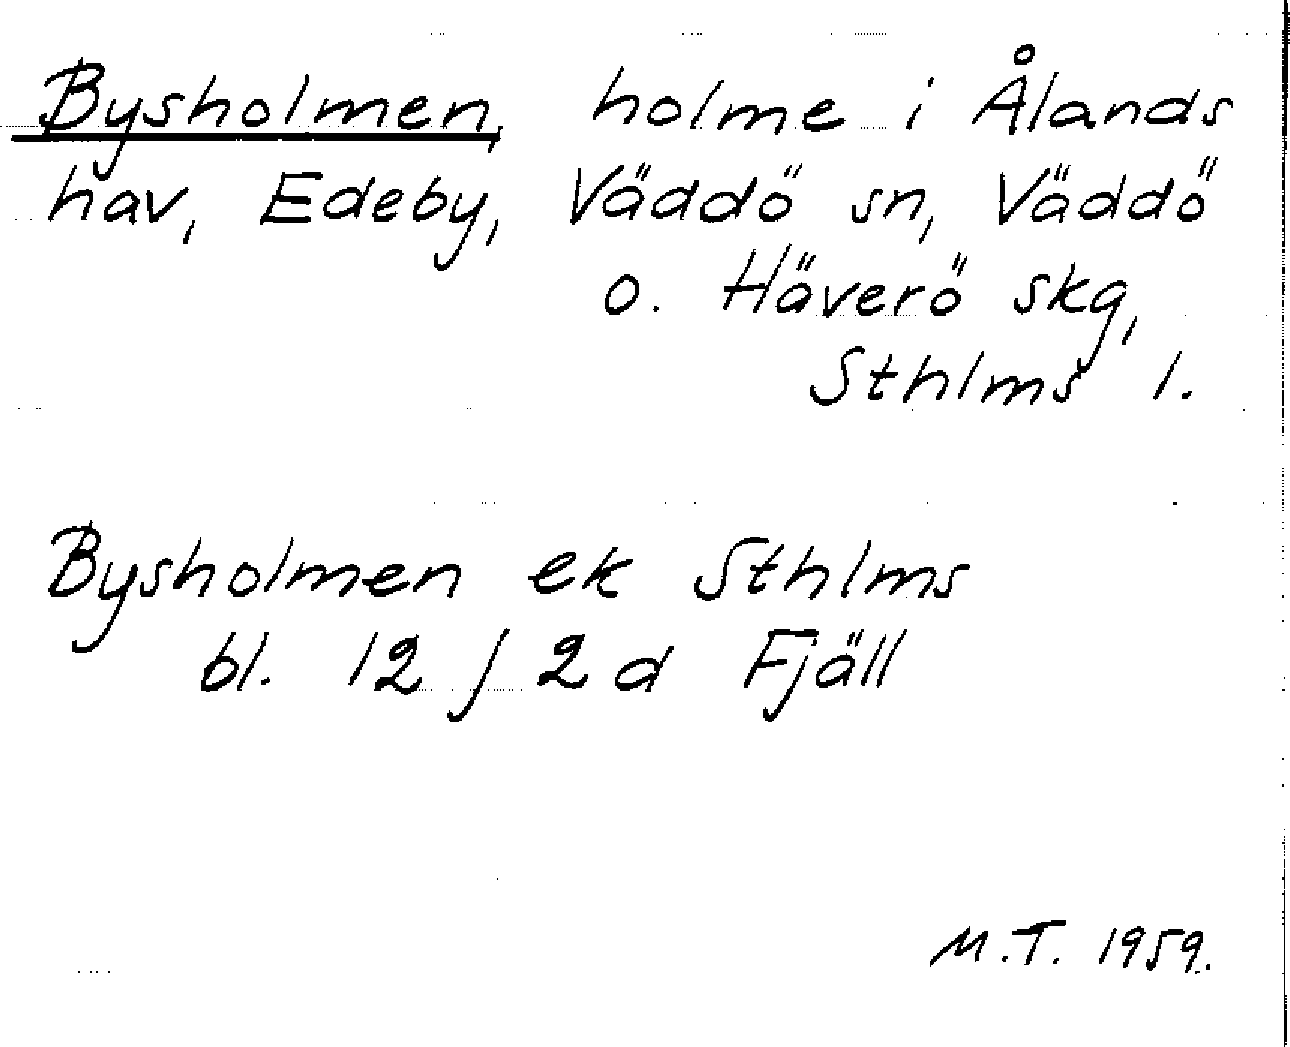 Bysholmen, holme i Ålands
hav, Edeby, Väddö sn, Väddö
o. Häverö skg,
Sthlms l.
Bysholmen ek Sthlms
bl. 12 J 2d Fjäll
M.T. 1959.